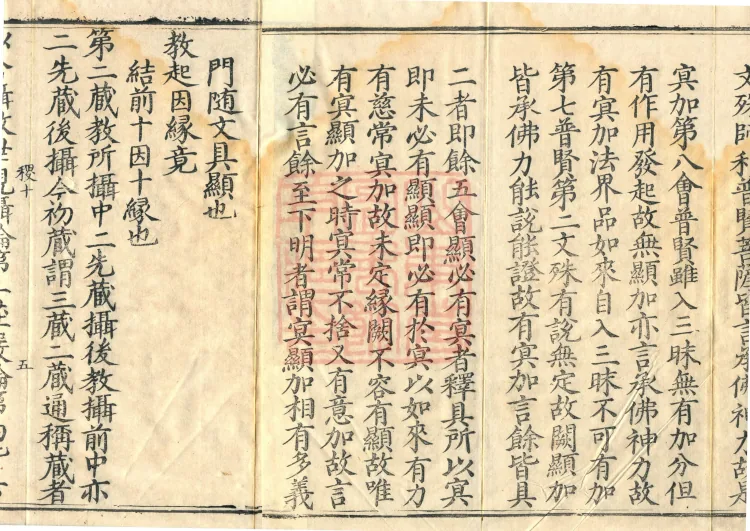 文殊師利普賢菩薩皆言承佛神力故是
冥加第八會普賢雖入三昧無有加分但
有作用發起故無顯加亦言承佛神力故
有冥加法界品如來自入三昧不可有加
第七普賢第二文殊有說無定故闕顯加
皆承佛力能說能證故有冥加言餘皆具
二者即餘五會顯必有冥者釋具所以冥
即未必有顯顯即必有於冥以如來有力
有慈常冥加故未定緣闕不容有顯故唯
有冥顯加之時冥常不捨又有意加故言
必有言餘至下明者謂冥顯加相有多義
門隨文具顯也
教起因緣竟
結前十因十緣也
第二藏教所攝中二先藏攝後教攝前中亦
二先藏後攝今初藏謂三藏二藏通稱藏者
稷十
五